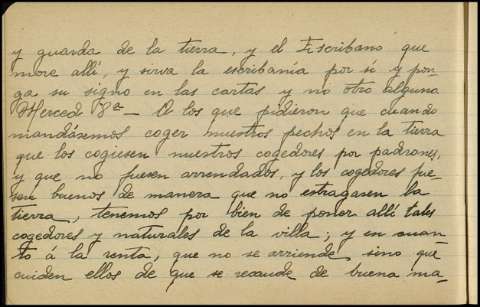 y guarda de la tierra, y el Escribano que
more allí, y sirva la escribanía por sí y pon-
ga su signo en las cartas y no otro alguno
Merced 8ª — A los que pidieron que cuando
mandásemos coger nuestros pechos en la tierra
que los cogiesen nuestros cogedores por padrones,
y que no fuesen arrendados, y los cogedores fue-
sen buenos de manera que no estragasen la
tierra, tenemos por bien de poner allí tales
cogedores y naturales de la villa; y en cuan-
to á la renta, que no se arriende sino que
cuiden ellos de que se recaude de buena ma-